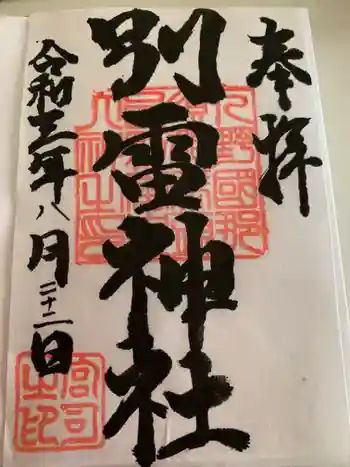 奉拝
別雷神社
令和三年八月二十二日
宮司之印